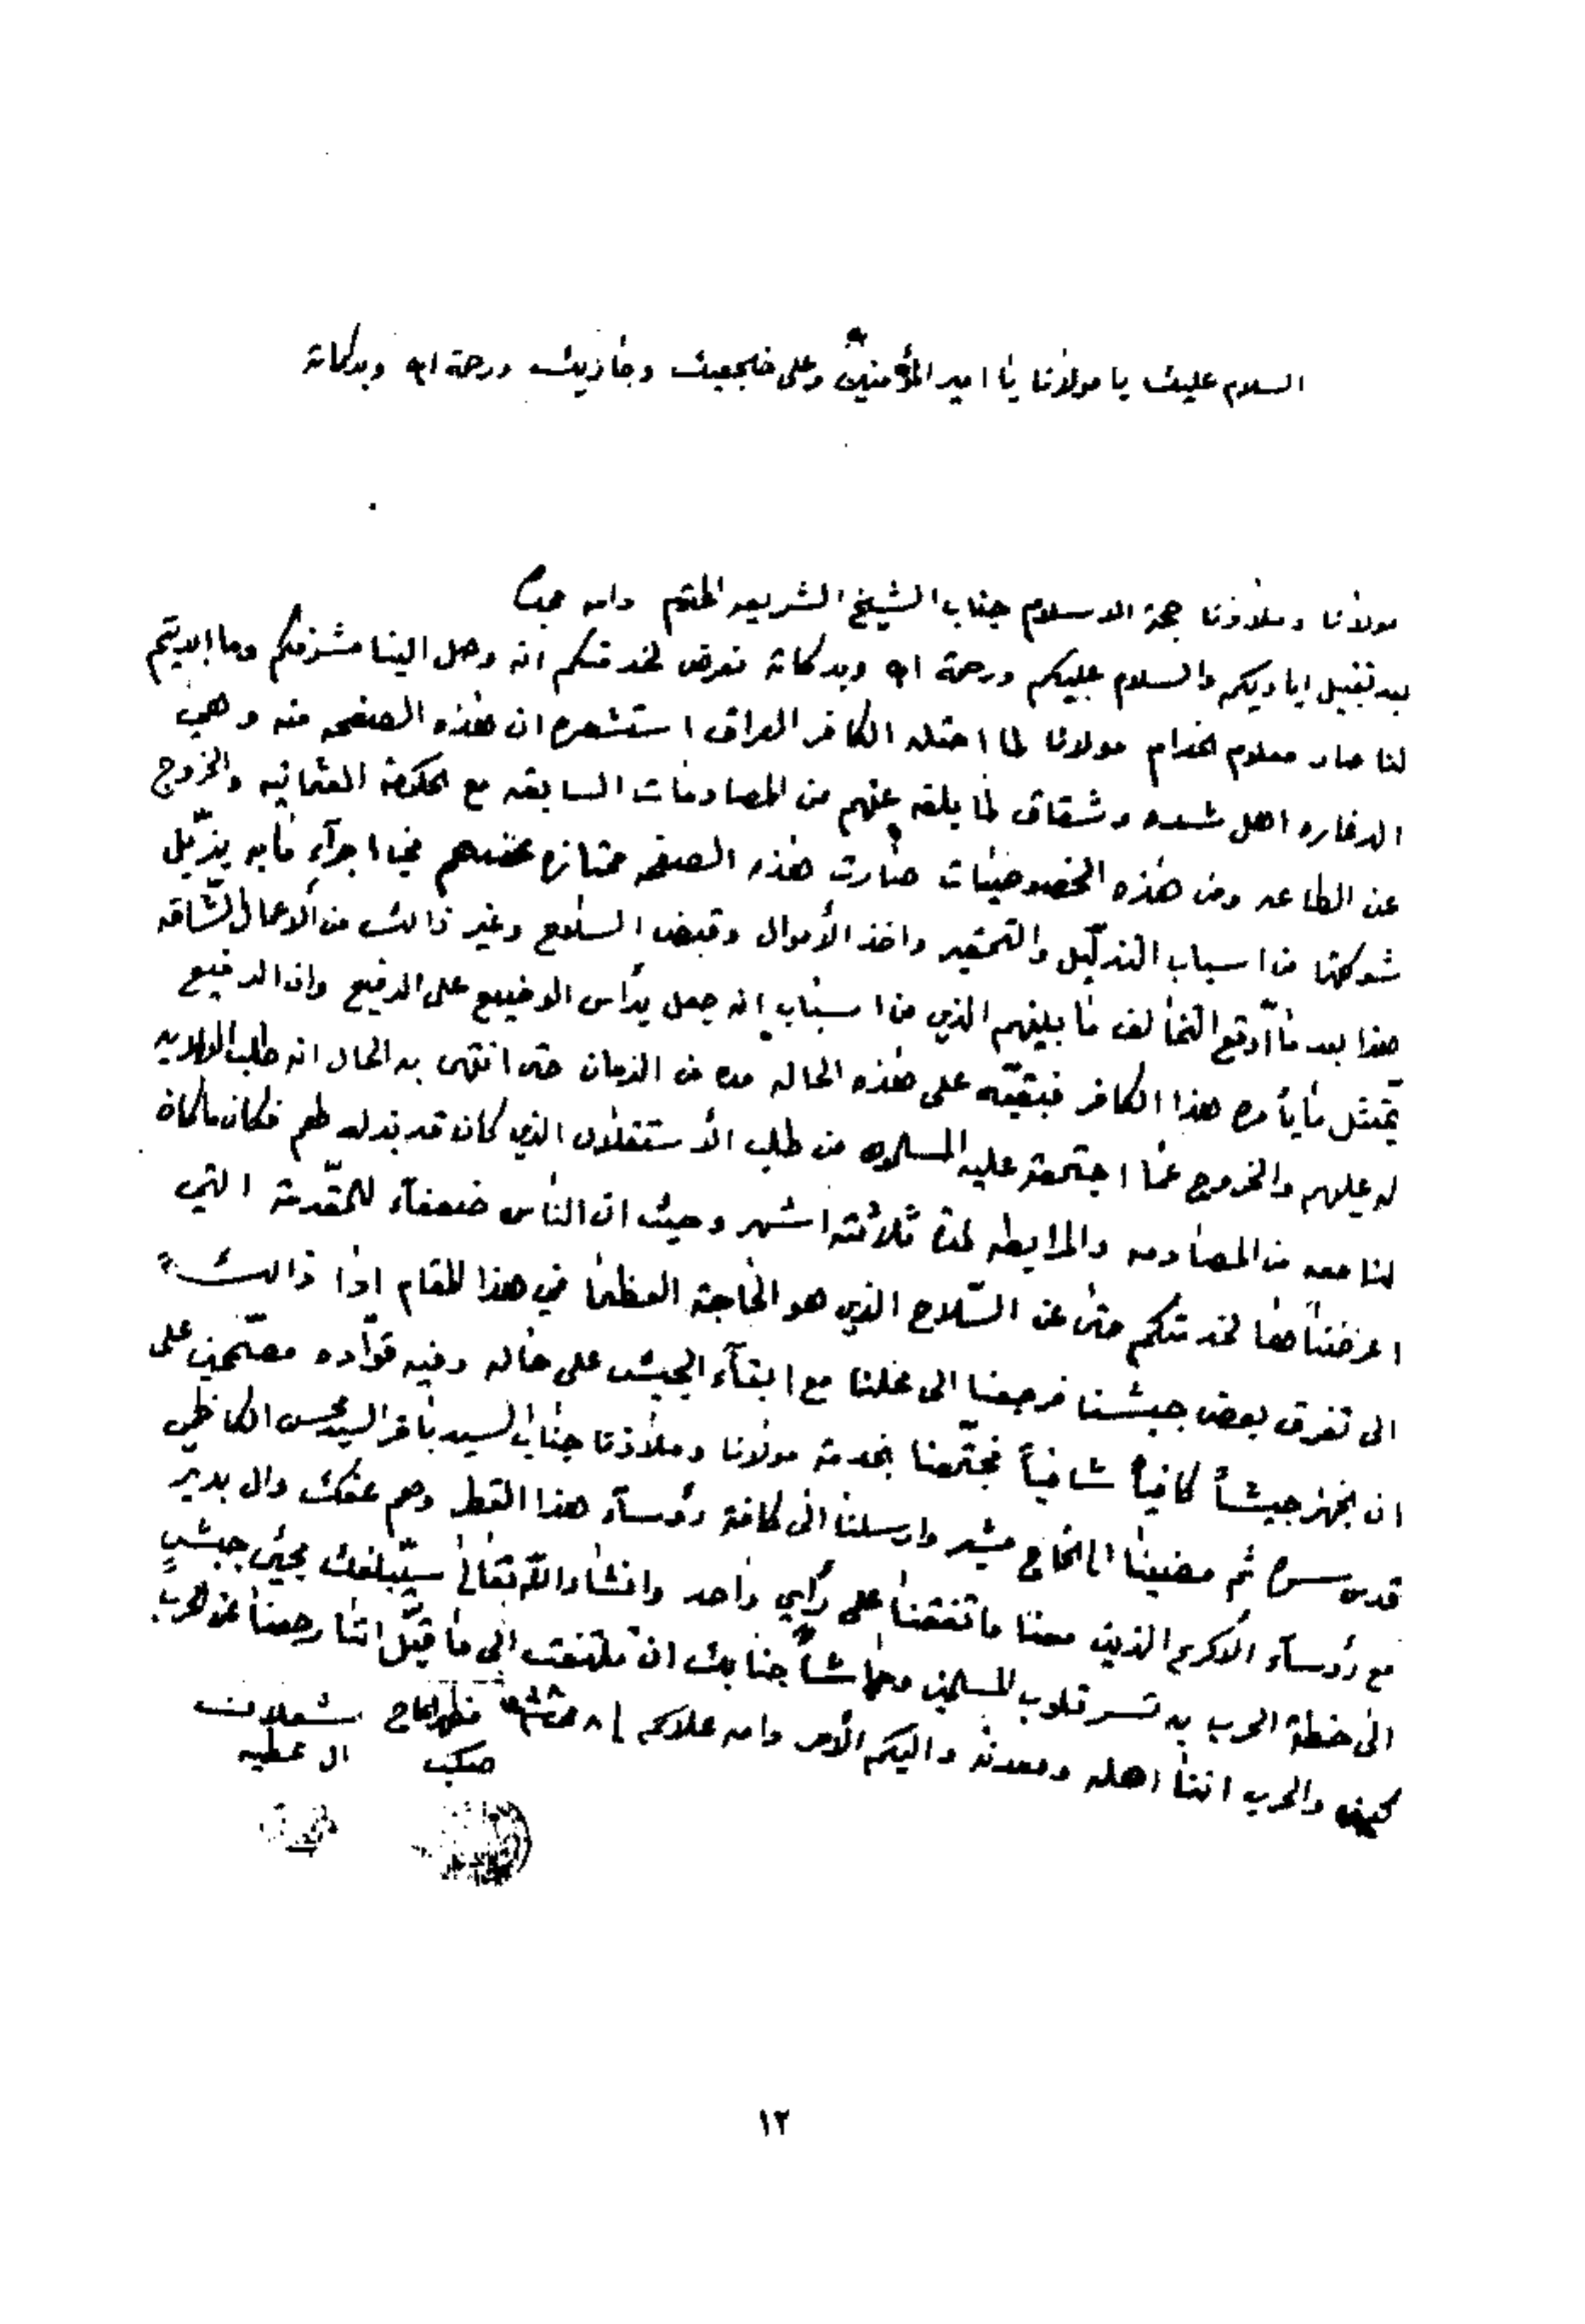 السلام عليك يا مولانا يا امير المؤمنين وعلى ضجيعيك وجاريك ورحمة الله وبركاته
مولانا وملاذنا حجة الاسلام جناب الشيخ الشريعه المحترم دامه
بعد تقبيل اياديكم والسلام عليكم ورحمة الله وبركاته نعرض لخدمتكم انه وصل الينا مشرفكم وما ابديتم
لنا صار معلوم الخدام مولانا لما احتله الكافر العراق استشعره ان هذه الصفحه منه وهي
الدغاره اهل شده وشقاق لما بلغه عنهم من المصادمات السابقه مع الحكومة العثمانيه والخروج
عن الطاعه ومن هذه الخصوصيات صارت هذه الصفحه ممتازه عندهم في اجرآء مابه يذيل
شوكتها من اسباب التذليل والتحقير واخذ الأموال وقبض السلاح وغير ذالك من الاعمال الشاقه
هذا بعد ما اوقع التخالف ما بينهم الذي من اسباب انه جعل يرأس الوضيع على الرفيع وان الرفيع
يمتثل مايأمره هذا الكافر فبقيته على هذه الحاله مده من الزمان حتى انتهى به الحال انه طلب
له عليهم والخروج عما اجتمعة عليه من طلب الأستقلال الذي كان قد بذله لهم فكان ماكان
لنا معه من المصادمه والمرابطه لمدة ثلاثة اشهر وحيث ان الناس ضعفآء للمقدمة التي
اعرضناها لخدمتكم حتى عن السلاح الذي هو الحاجة العظما في هذا المقام ادا ذالك
الى تفرق بعض جيشنا فرجعنا الى محلنا مع ابقآء الجيش على حاله وفيه قواده مصممين على
ان نجهز جيشاً كافياً شافياً فجتمعنا بخدمة مولانا وملاذنا جناب السيد باقر السيد محسن الكاظمي
قدس سره ثم مضينا الى الحاج مشير وارسلنا الى كافة رؤسآء هذا القطر وهم عفك وال بدير
مع رؤسآء الاكرع الذين معنا فاتفقنا على رأي واحد وانشاء الله تعالى سيبلغك بمجيئ جيش
الى خطة الحرب به تسر قلوب المسلمين وحاشا جنابك ان تلتفت الى ما قيل اننا رجعنا عن الحرب
كيف والحرب اننا اهله ومعدنه واليكم الأمر دامه علاكم مظهر الحاج شعلان
صكب ال عطيه
١٢